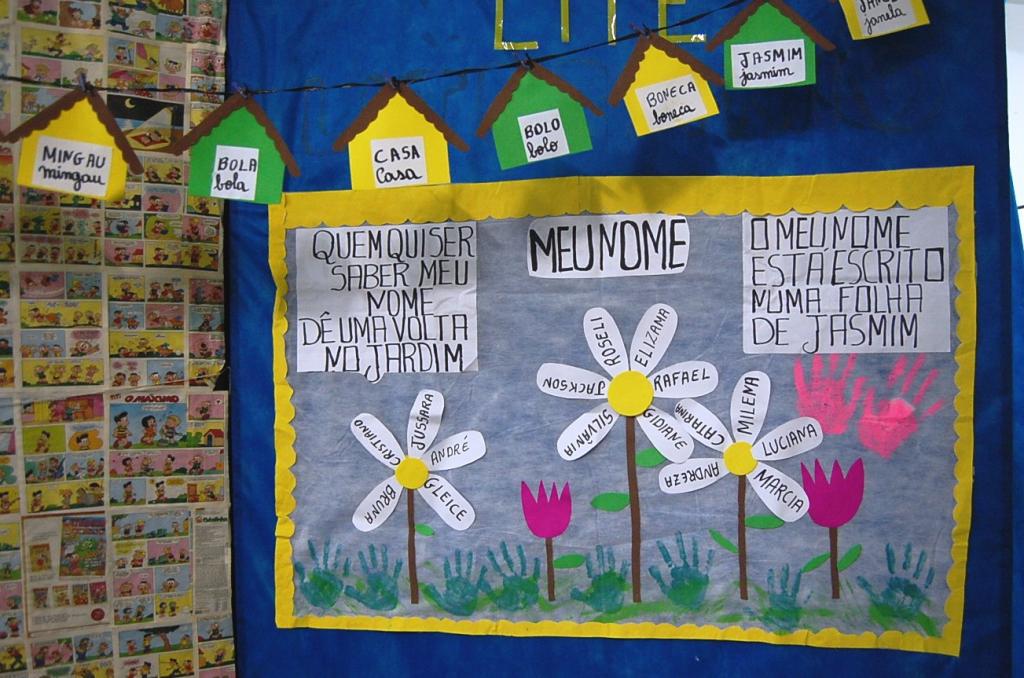 MINGAU
mingau
BOLA
bola
CASA
Casa
BOLO
bolo
BONECA
boneca
JASMIM
jasmim
janela
QUEM QUISER
SABER MEU
NOME
DÊ UMA VOLTA
NO JARDIM
MEU NOME
O MEU NOME
ESTA ESCRITO
NUMA FOLHA
DE JASMIM
CRISTIANO
JUSSARA
ANDRÉ
GLEICE
BRUNA
ROSELI
ELIZAMA
RAFAEL
GIDIANE
SILVÂNIA
JACKSON
CATARINA
MILENA
LUCIANA
MARCIA
ANDREZA
O MÁXIMO